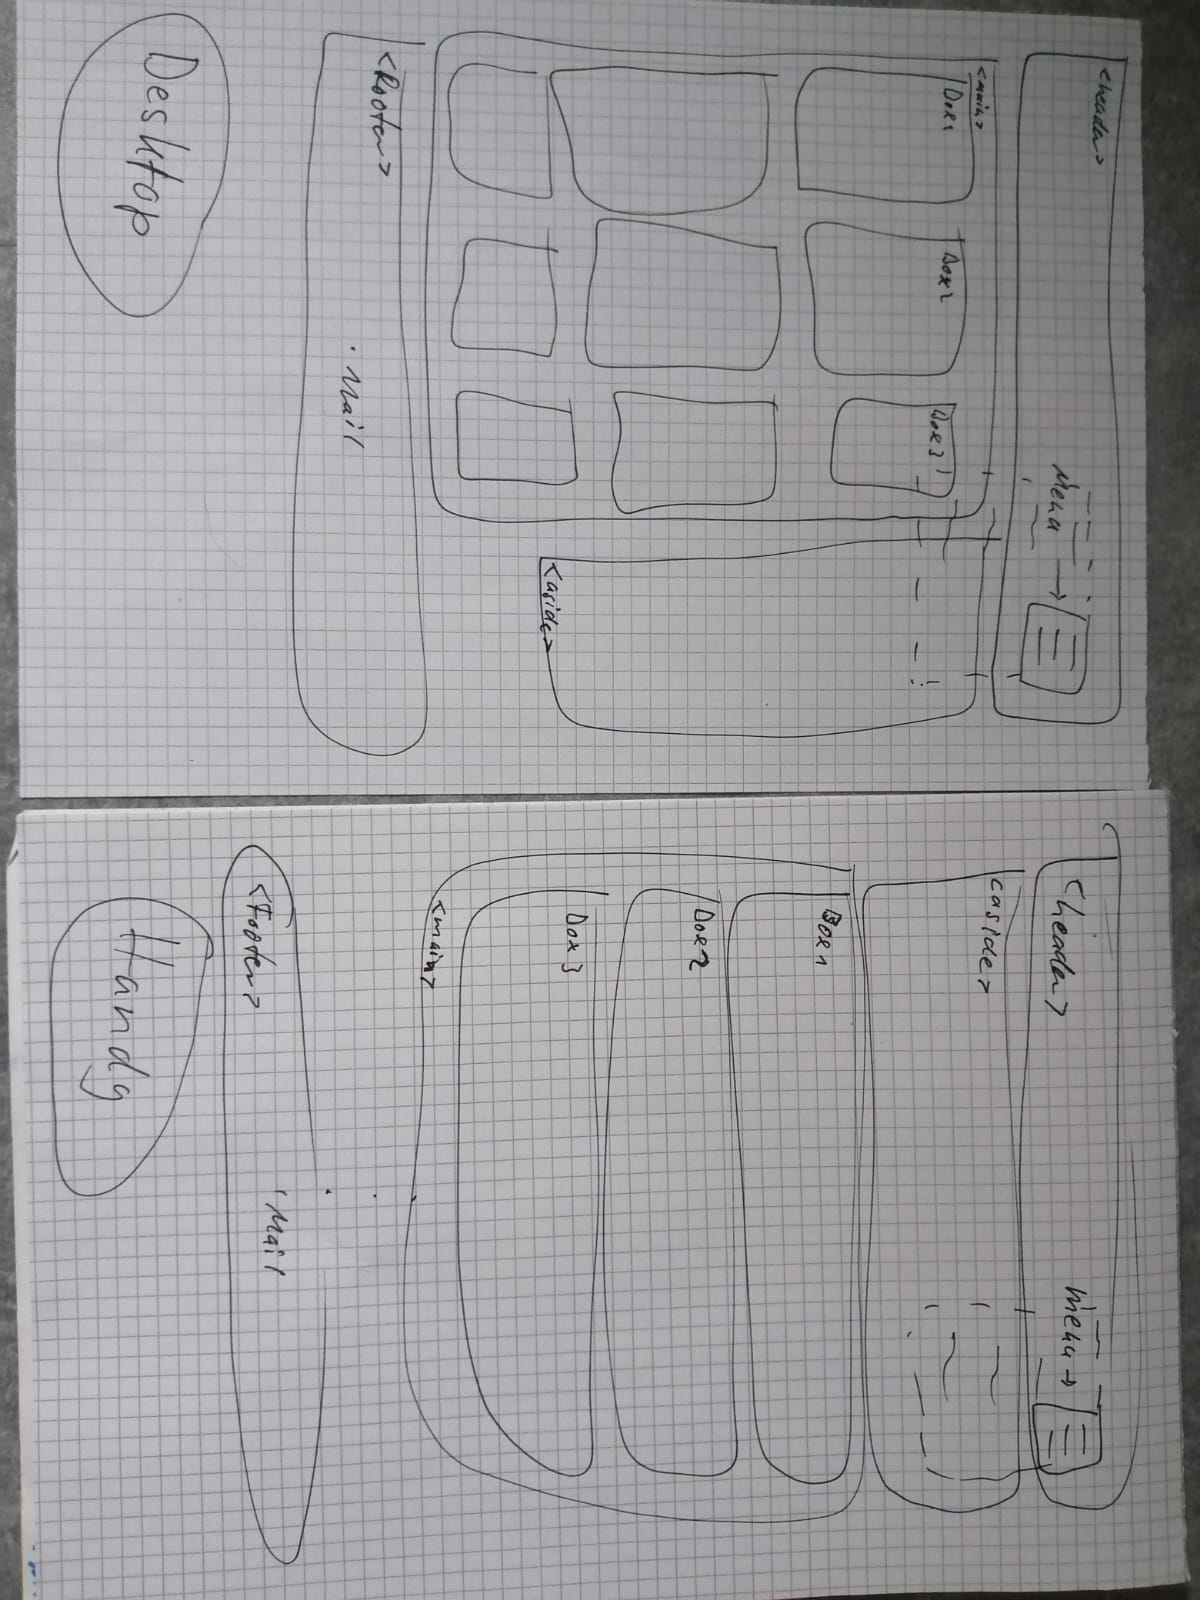 <header>
Menu →
<main>
Box1
Box2
Box3
<aside>
<Footer>
· Mail
Desktop
<header>
Menu →
<aside>
Box1
Box2
Box3
<main>
<Footer>
· Mail
Handy